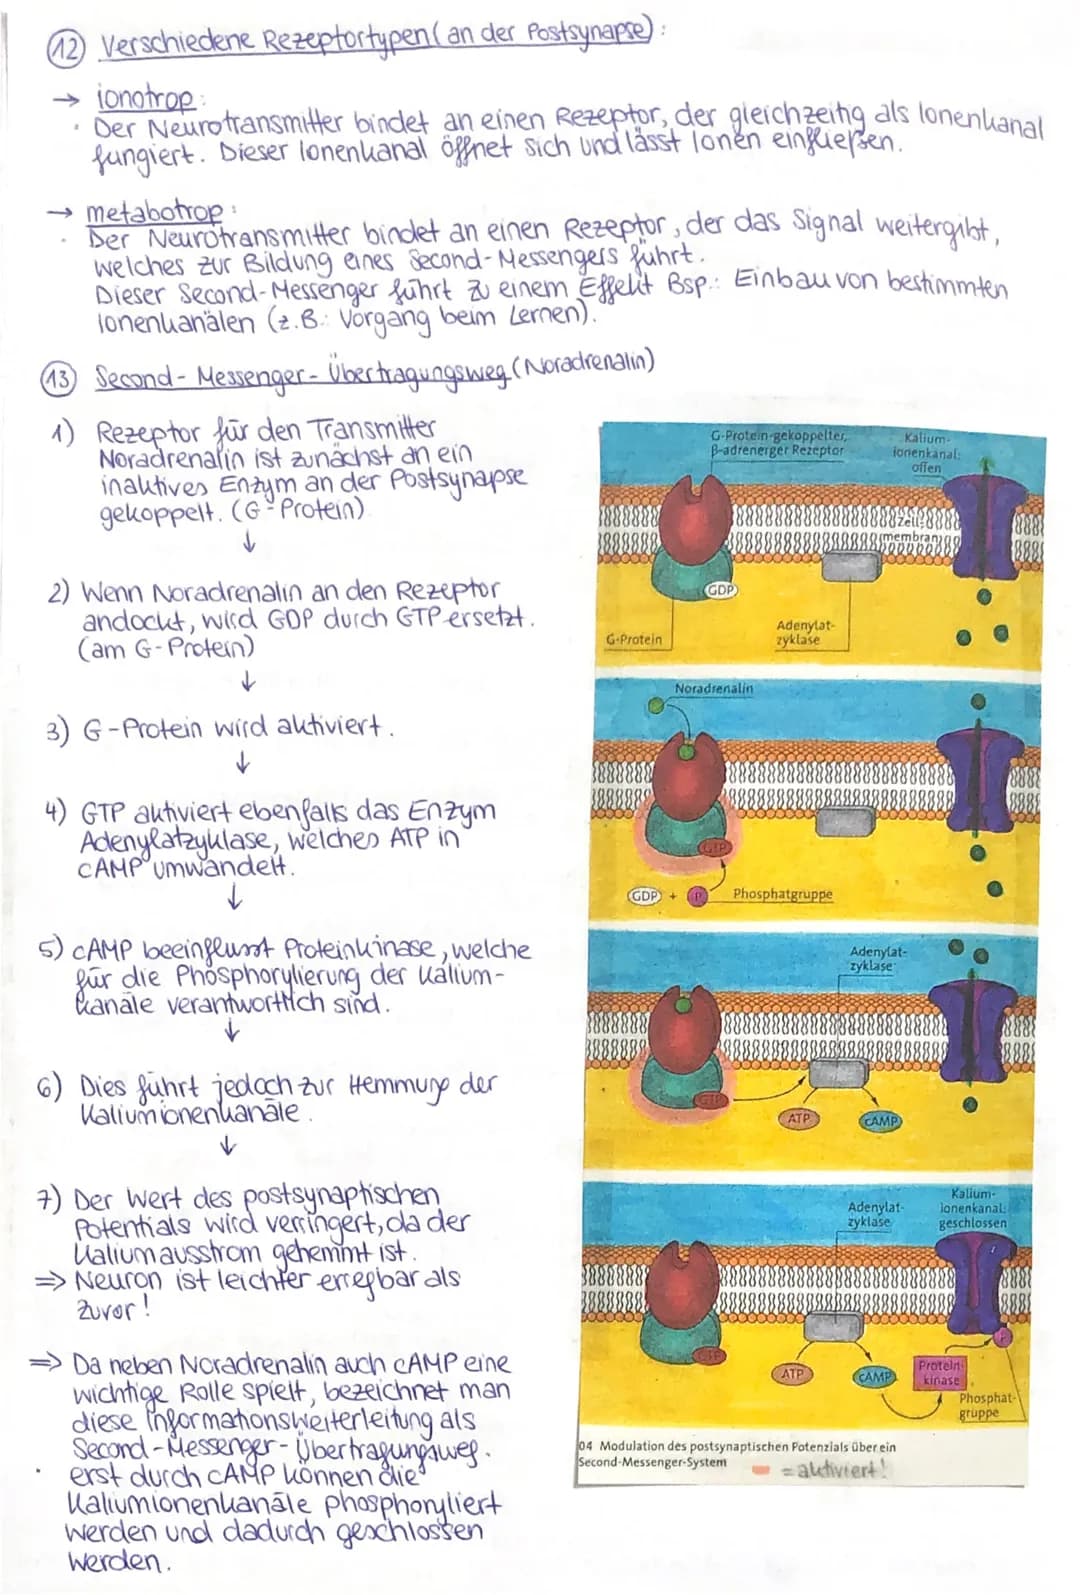 12 Verschiedene Rezeptortypen (an der Postsynapse):
→ ionotrop:
· Der Neurotransmitter bindet an einen Rezeptor, der gleichzeitig als Ionenkanal
fungiert. Dieser Ionenkanal öffnet sich und lässt Ionen einfließen.
→ metabotrop:
· Der Neurotransmitter bindet an einen Rezeptor, der das Signal weitergibt,
welches zur Bildung eines Second-Messengers führt.
Dieser Second-Messenger führt zu einem Effekt Bsp.: Einbau von bestimmten
Ionenkanälen (z.B.: Vorgang beim Lernen).
13 Second-Messenger-Übertragungsweg (Noradrenalin)
1) Rezeptor für den Transmitter
Noradrenalin ist zunächst an ein
inaktives Enzym an der Postsynapse
gekoppelt. (G-Protein)
↓
2) Wenn Noradrenalin an den Rezeptor
andockt, wird GDP durch GTP ersetzt.
(am G-Protein)
↓
3) G-Protein wird aktiviert.
↓
4) GTP aktiviert ebenfalls das Enzym
Adenylatzyklase, welches ATP in
cAMP umwandelt.
↓
5) cAMP beeinflusst Proteinkinase, welche
für die Phosphorylierung der Kalium-
kanäle verantwortlich sind.
↓
6) Dies führt jedoch zur Hemmung der
Kaliumionenkanäle.
↓
7) Der Wert des postsynaptischen
Potentials wird verringert, da der
Kaliumausstrom gehemmt ist.
⇒ Neuron ist leichter erregbar als
zuvor!
⇒ Da neben Noradrenalin auch cAMP eine
wichtige Rolle spielt, bezeichnet man
diese Informationsweiterleitung als
Second-Messenger-Übertragungsweg.
· erst durch cAMP können die
Kaliumionenkanäle phosphoryliert
werden und dadurch geschlossen
werden.
G-Protein-gekoppelter,
β-adrenerger Rezeptor
Kalium-
ionenkanal:
offen
Zell-
membran
GDP
G-Protein
Adenylat-
zyklase
Noradrenalin
GTP
GDP + P
Phosphatgruppe
Adenylat-
zyklase
GTP
ATP
cAMP
Adenylat-
zyklase
Kalium-
ionenkanal:
geschlossen
GTP
P
ATP
cAMP
Protein-
kinase
Phosphat-
gruppe
04 Modulation des postsynaptischen Potenzials über ein
Second-Messenger-System
= aktiviert!